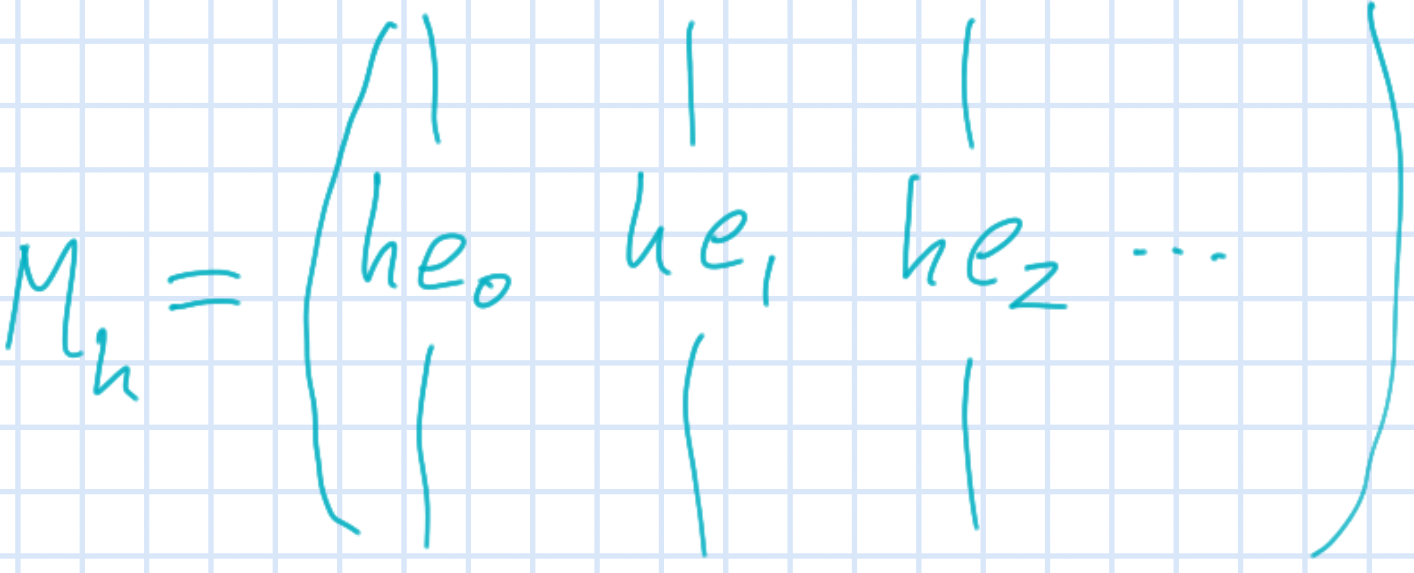 M_h = ( | he_0 | | he_1 | | he_2 | ⋯ )